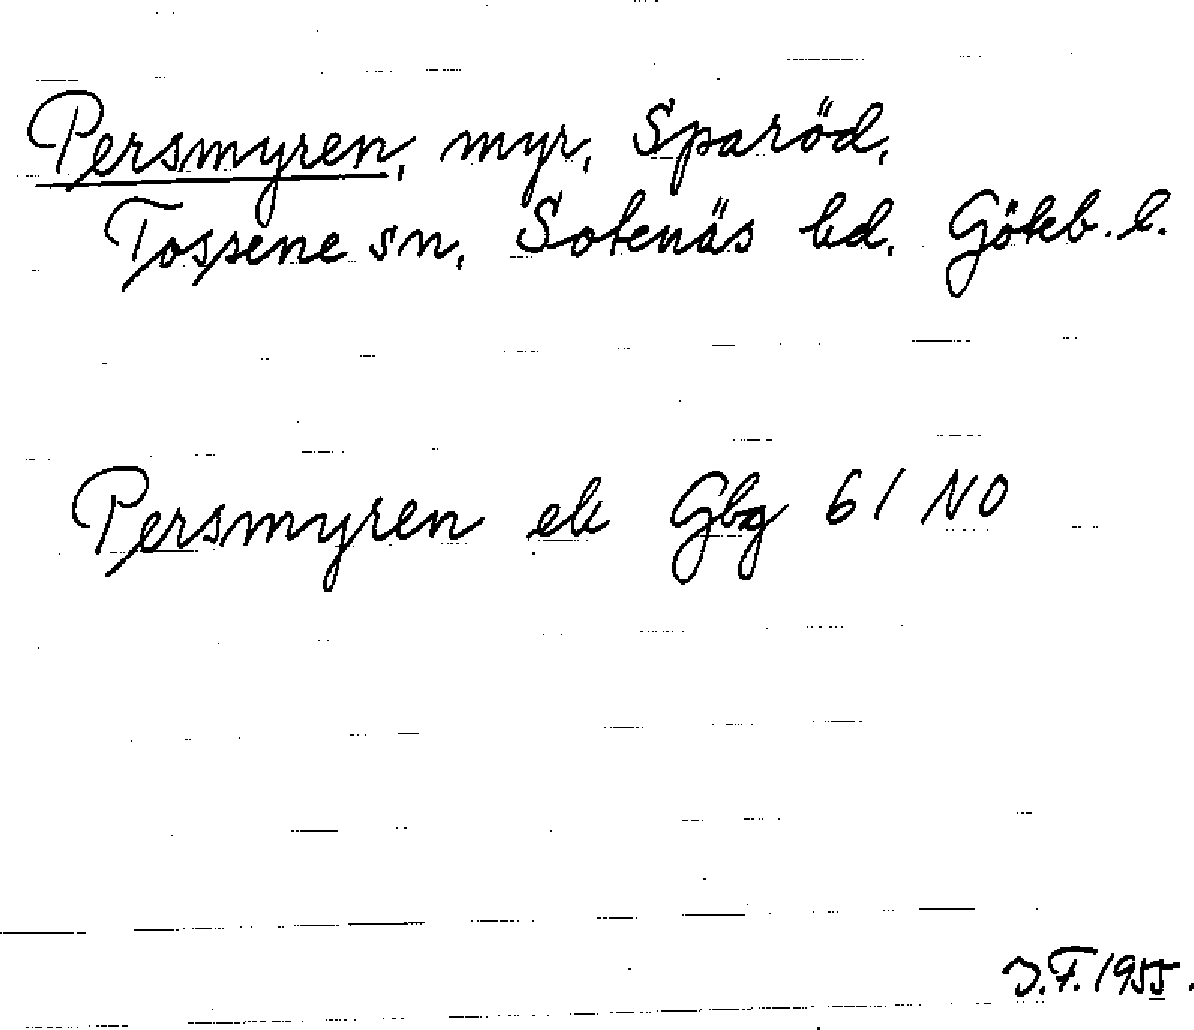 Persmyren, myr, Sparöd,
Tossene sn, Sotenäs hd. Göteb. l.
Persmyren ek Gbg 61 NO
J.F. 1955.